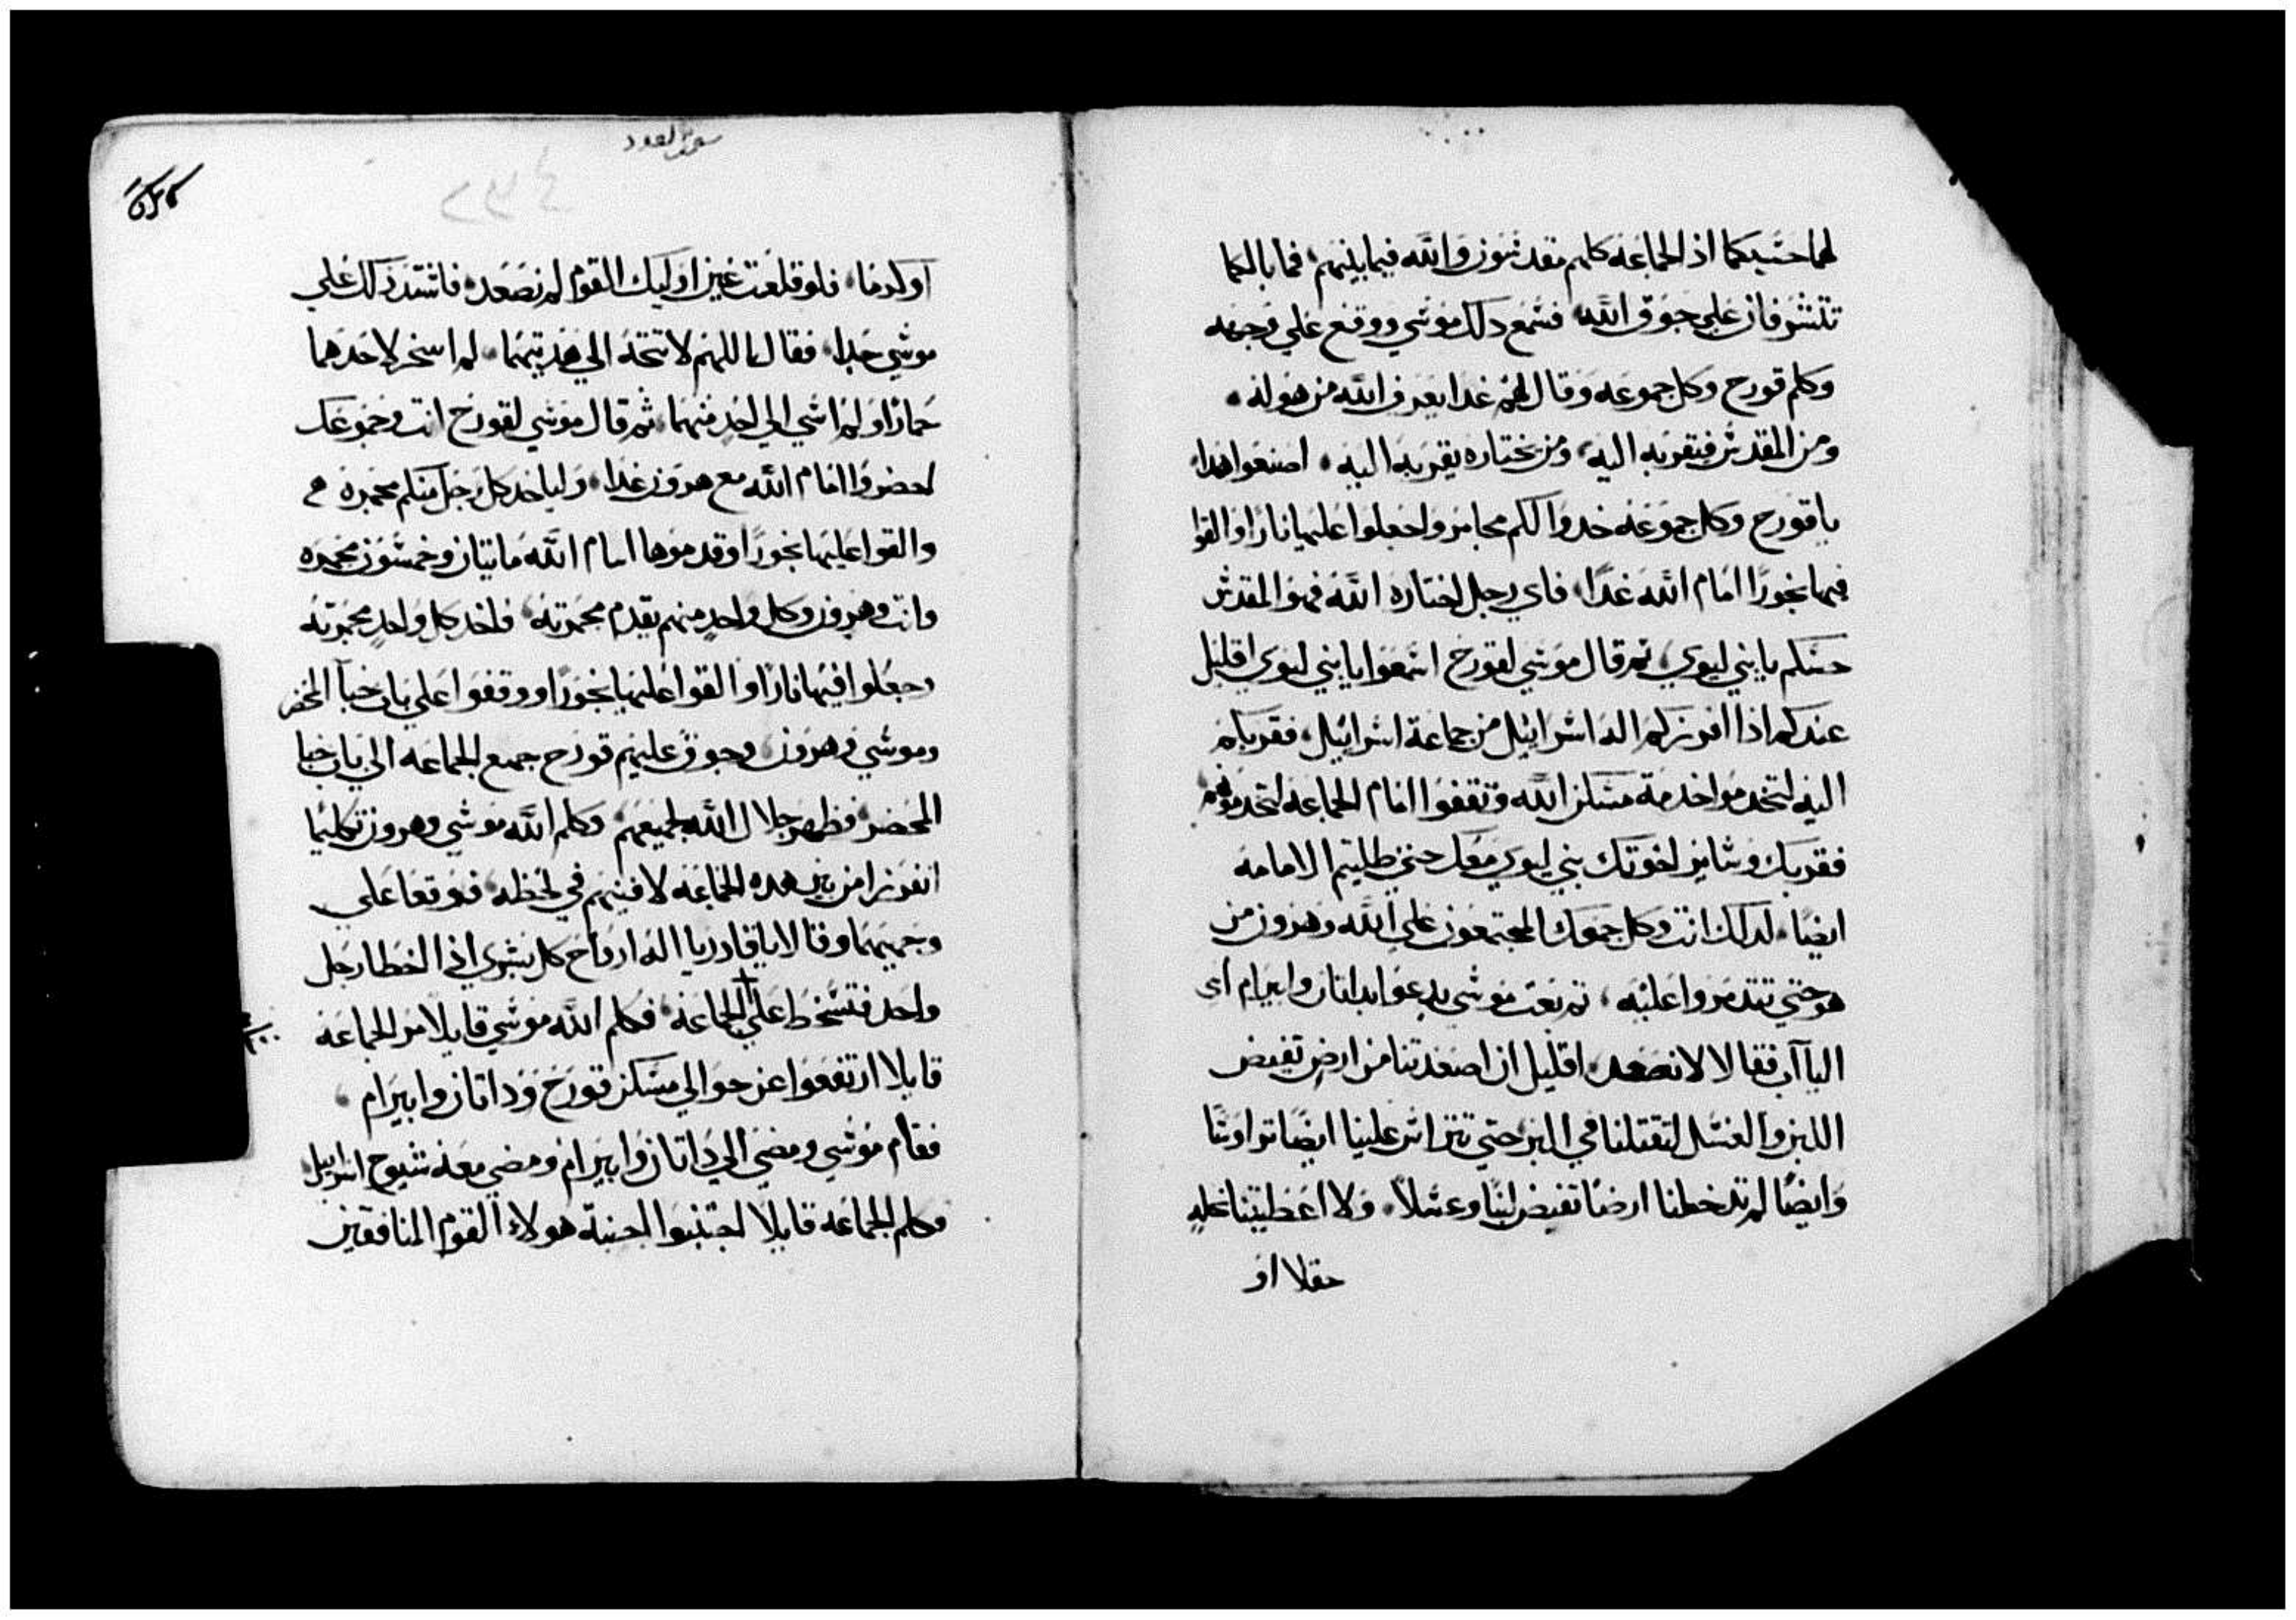 لهما حسبكما اذ الجماعه كلهم مقدسون والله فيما بينهم فما بالكما
تتشرفان علي جوق الله فسمع دلك موسي ووقع علي وجهه
وكلم قورح وكل جموعه وقال لهم غدا يعرف الله من هو له
ومن المقدس فيقربه اليه ومن يختاره يقربه اليه اصنعوا هدا
ياقورح وكل جموعه خدوا لكم مجامر واجعلوا عليها نارا والقوا
فيها بخورا امام الله غدا فاي رجل اختاره الله فهو المقدس
حسبكم يابني ليوي ثم قال موسي لقورح اسمعوا يابني ليوي اقليل
عندكم اذا افرزكم اله اسراييل من جماعة اسراييل فقربكم
اليه لتخدموا خدمة مسكن الله وتقفوا امام الجماعه لتخدموهم
فقربك وساير اخوتك بني ليوي معك حتي طلبتم الامامه
ايضا لدلك انت وكل جموعك المجتمعون علي الله وهرون من
هو حتي تتدمروا عليه ثم بعث موسي يدعوا بداتان وابيرام اي
الياآب فقالا لا نصعد اقليل ان اصعدتنا من ارض تفيض
اللبن والعسل لتقتلنا في البر حتي تتراس علينا ايضا تراوسا
وايضا لم تدخلنا ارضا تفيض لبنا وعسلا ولا اعطيتنا نحله
حقلا او
سفر العدد
او كرما فلو قلعت عين اوليك القوم لم نصعد فاشتد دلك علي
موسي جدا فقال اللهم لا تتجه الي هديتهما لم اسخر لاحدهما
حمارا ولم اسي الي احد منهما ثم قال موسي لقورح انت وجموعك
احضروا امام الله مع هرون غدا ولياخد كل رجل منكم مجمره
والقوا عليها بخورا وقدموها امام الله مايتان وخمسون مجمره
وانت وهرون وكل واحد منهم يقدم مجمرته فاخد كل واحد مجمرته
وجعلوا فيها نارا والقوا عليها بخورا ووقفوا علي باب خبآ المحضر
وموسي وهرون وجوق عليهم قورح جميع الجماعه الي باب خبا
المحضر فظهر جلال الله لجميعهم وكلم الله موسي وهرون تكليما
انفرزا من بين هده الجماعه لافنيهم في لحظه فوقعا علي
وجهيهما وقالا ياقادر يا اله ارواح كل بشري اذ اخطا رجل
واحد فتسخط علي الجماعه فكلم الله موسي قايلا مر الجماعه
قايلا ارتفعوا عن حوالي مسكن قورح وداتان وابيرام
فقام موسي ومضي الي داتان وابيرام ومضي معه شيوح اسراييل
وكلم الجماعه قايلا اجتنبوا اخبية هولاء القوم المنافقين